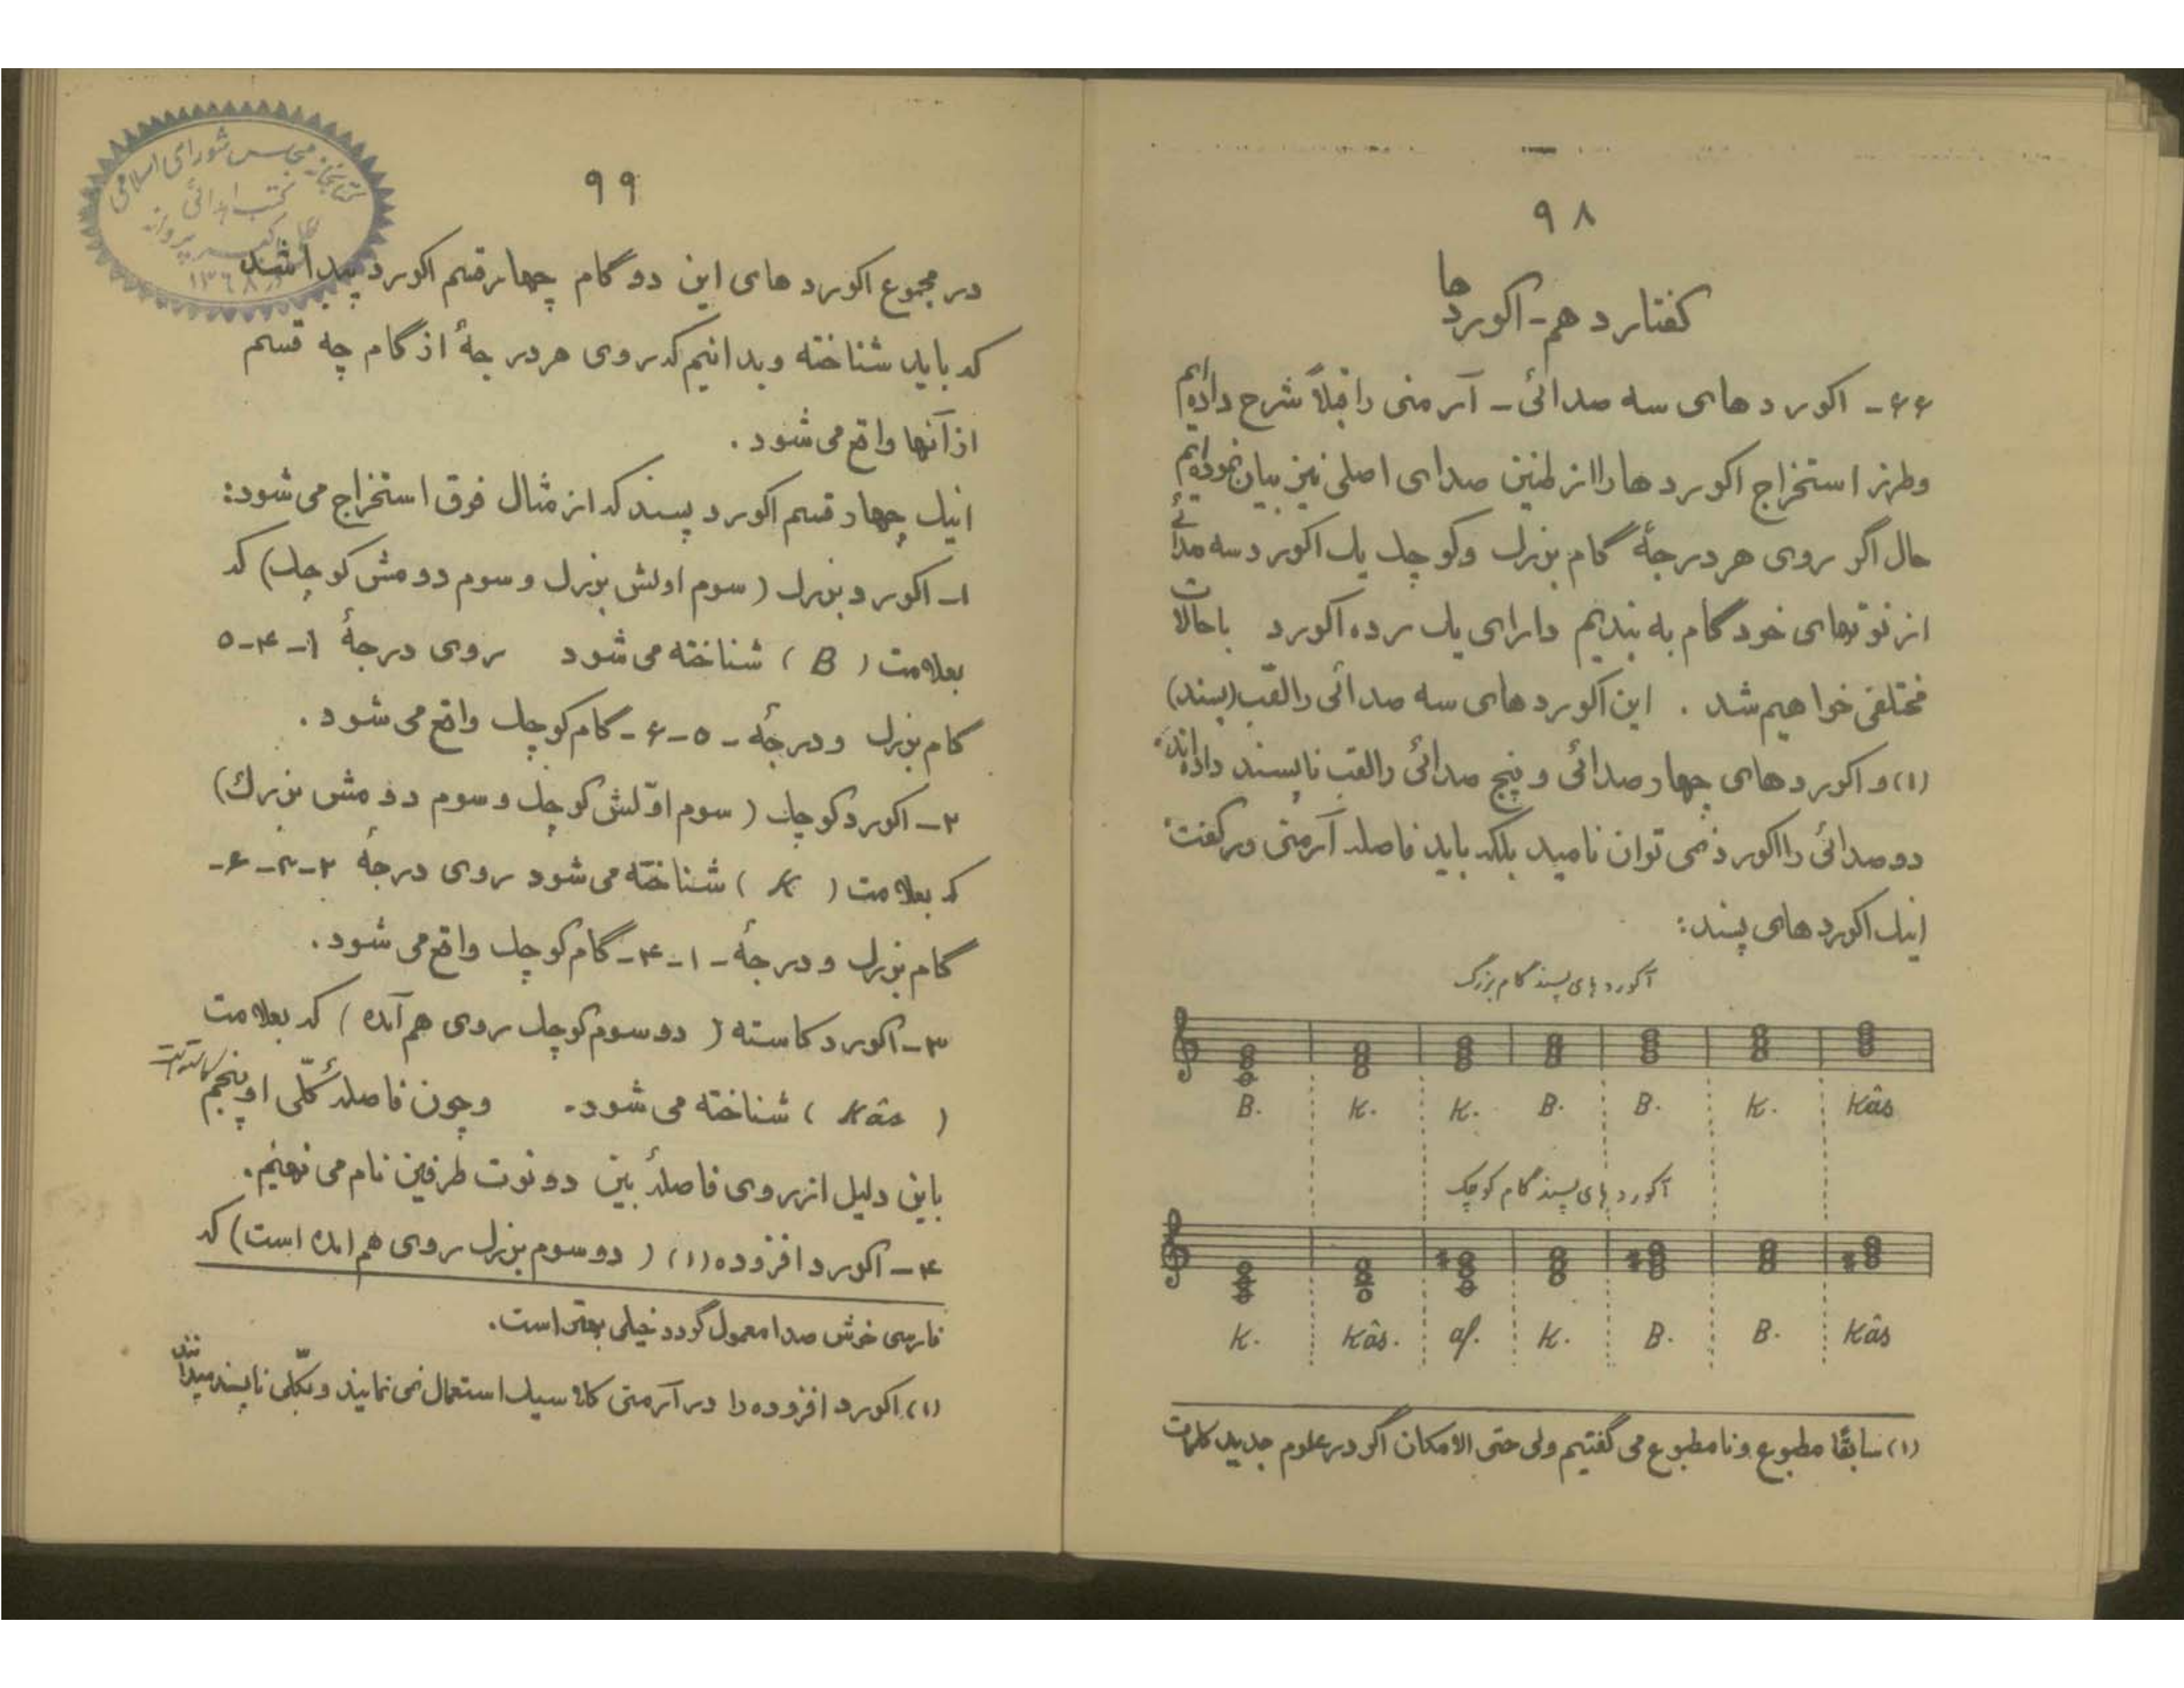 ۹۸
گفتار دهم - اکوردها
۶۶ - اکوردهای سه صدائی - آرمنی را قبلاً شرح داده‌ایم
وطرز استخراج اکوردها را از طنین صدای اصلی نیز بیان نموده‌ایم
حال اگر روی هر درجهٔ گام بزرك وکوچك یك اکورد سه صدائی
از نوتهای خود گام به بندیم دارای یك رده اکورد باحالات
مختلفی خواهیم شد . این اکوردهای سه صدائی را لقب (پسند)
(۱) و اکوردهای چهارصدائی و پنج صدائی را لقب ناپسند داده‌اند.
دو صدائی را اکورد نمی توان نامید بلکه باید فاصله آرمنی ور گفت.
اینك اکوردهای پسند:
آکوردهای پسند گام بزرگ
B. K. K. B. B. K. Kâs
آکوردهای پسند گام کوچک
K. Kâs. af. K. B. B. Kâs
(۱) سابقًا مطبوع ونامطبوع می گفتیم ولی حتی الامکان اگر در علوم جدید کلمات
۹۹
در مجموع اکوردهای این دو گام چهار قسم اکورد پیدا شد
که باید شناخته وبدانیم که روی هر درجهٔ از گام چه قسم
از آنها واقع می شود .
اینك چهار قسم اکورد پسند که از مثال فوق استخراج می شود:
۱- اکورد بزرك (سوم اولش بزرك و سوم دومش کوچك) که
بعلامت ( B ) شناخته می شود روی درجهٔ ۱-۴-۵
گام بزرك ودرجهٔ - ۵-۶- گام کوچك واقع می شود .
۲- اکورد کوچك ( سوم اوّلش کوچك و سوم دومش بزرك)
که بعلامت ( K ) شناخته می شود روی درجهٔ ۲-۳-۶-
گام بزرك و درجهٔ - ۱-۴- گام کوچك واقع می شود .
۳- اکورد کاسته ( دو سوم کوچك روی هم آمده ) که بعلامت
( Kâs ) شناخته می شود. وچون فاصلهٔ کلّی او پنجم کاسته است
باین دلیل از روی فاصلهٔ بین دو نوت طرفین نام می نهیم.
۴- اکورد افزوده (۱) ( دو سوم بزرك روی هم امده است) که
فارسی خوش صدا معمول گردد خیلی بهتر است.
(۱) اکورد افزوده را در آرمنی کلاسیك استعمال نمی نمایند و بکلّی ناپسند میدانند
کتابخانه مجلس شورای اسلامی
کتب اهدائی
۱۳۶۸